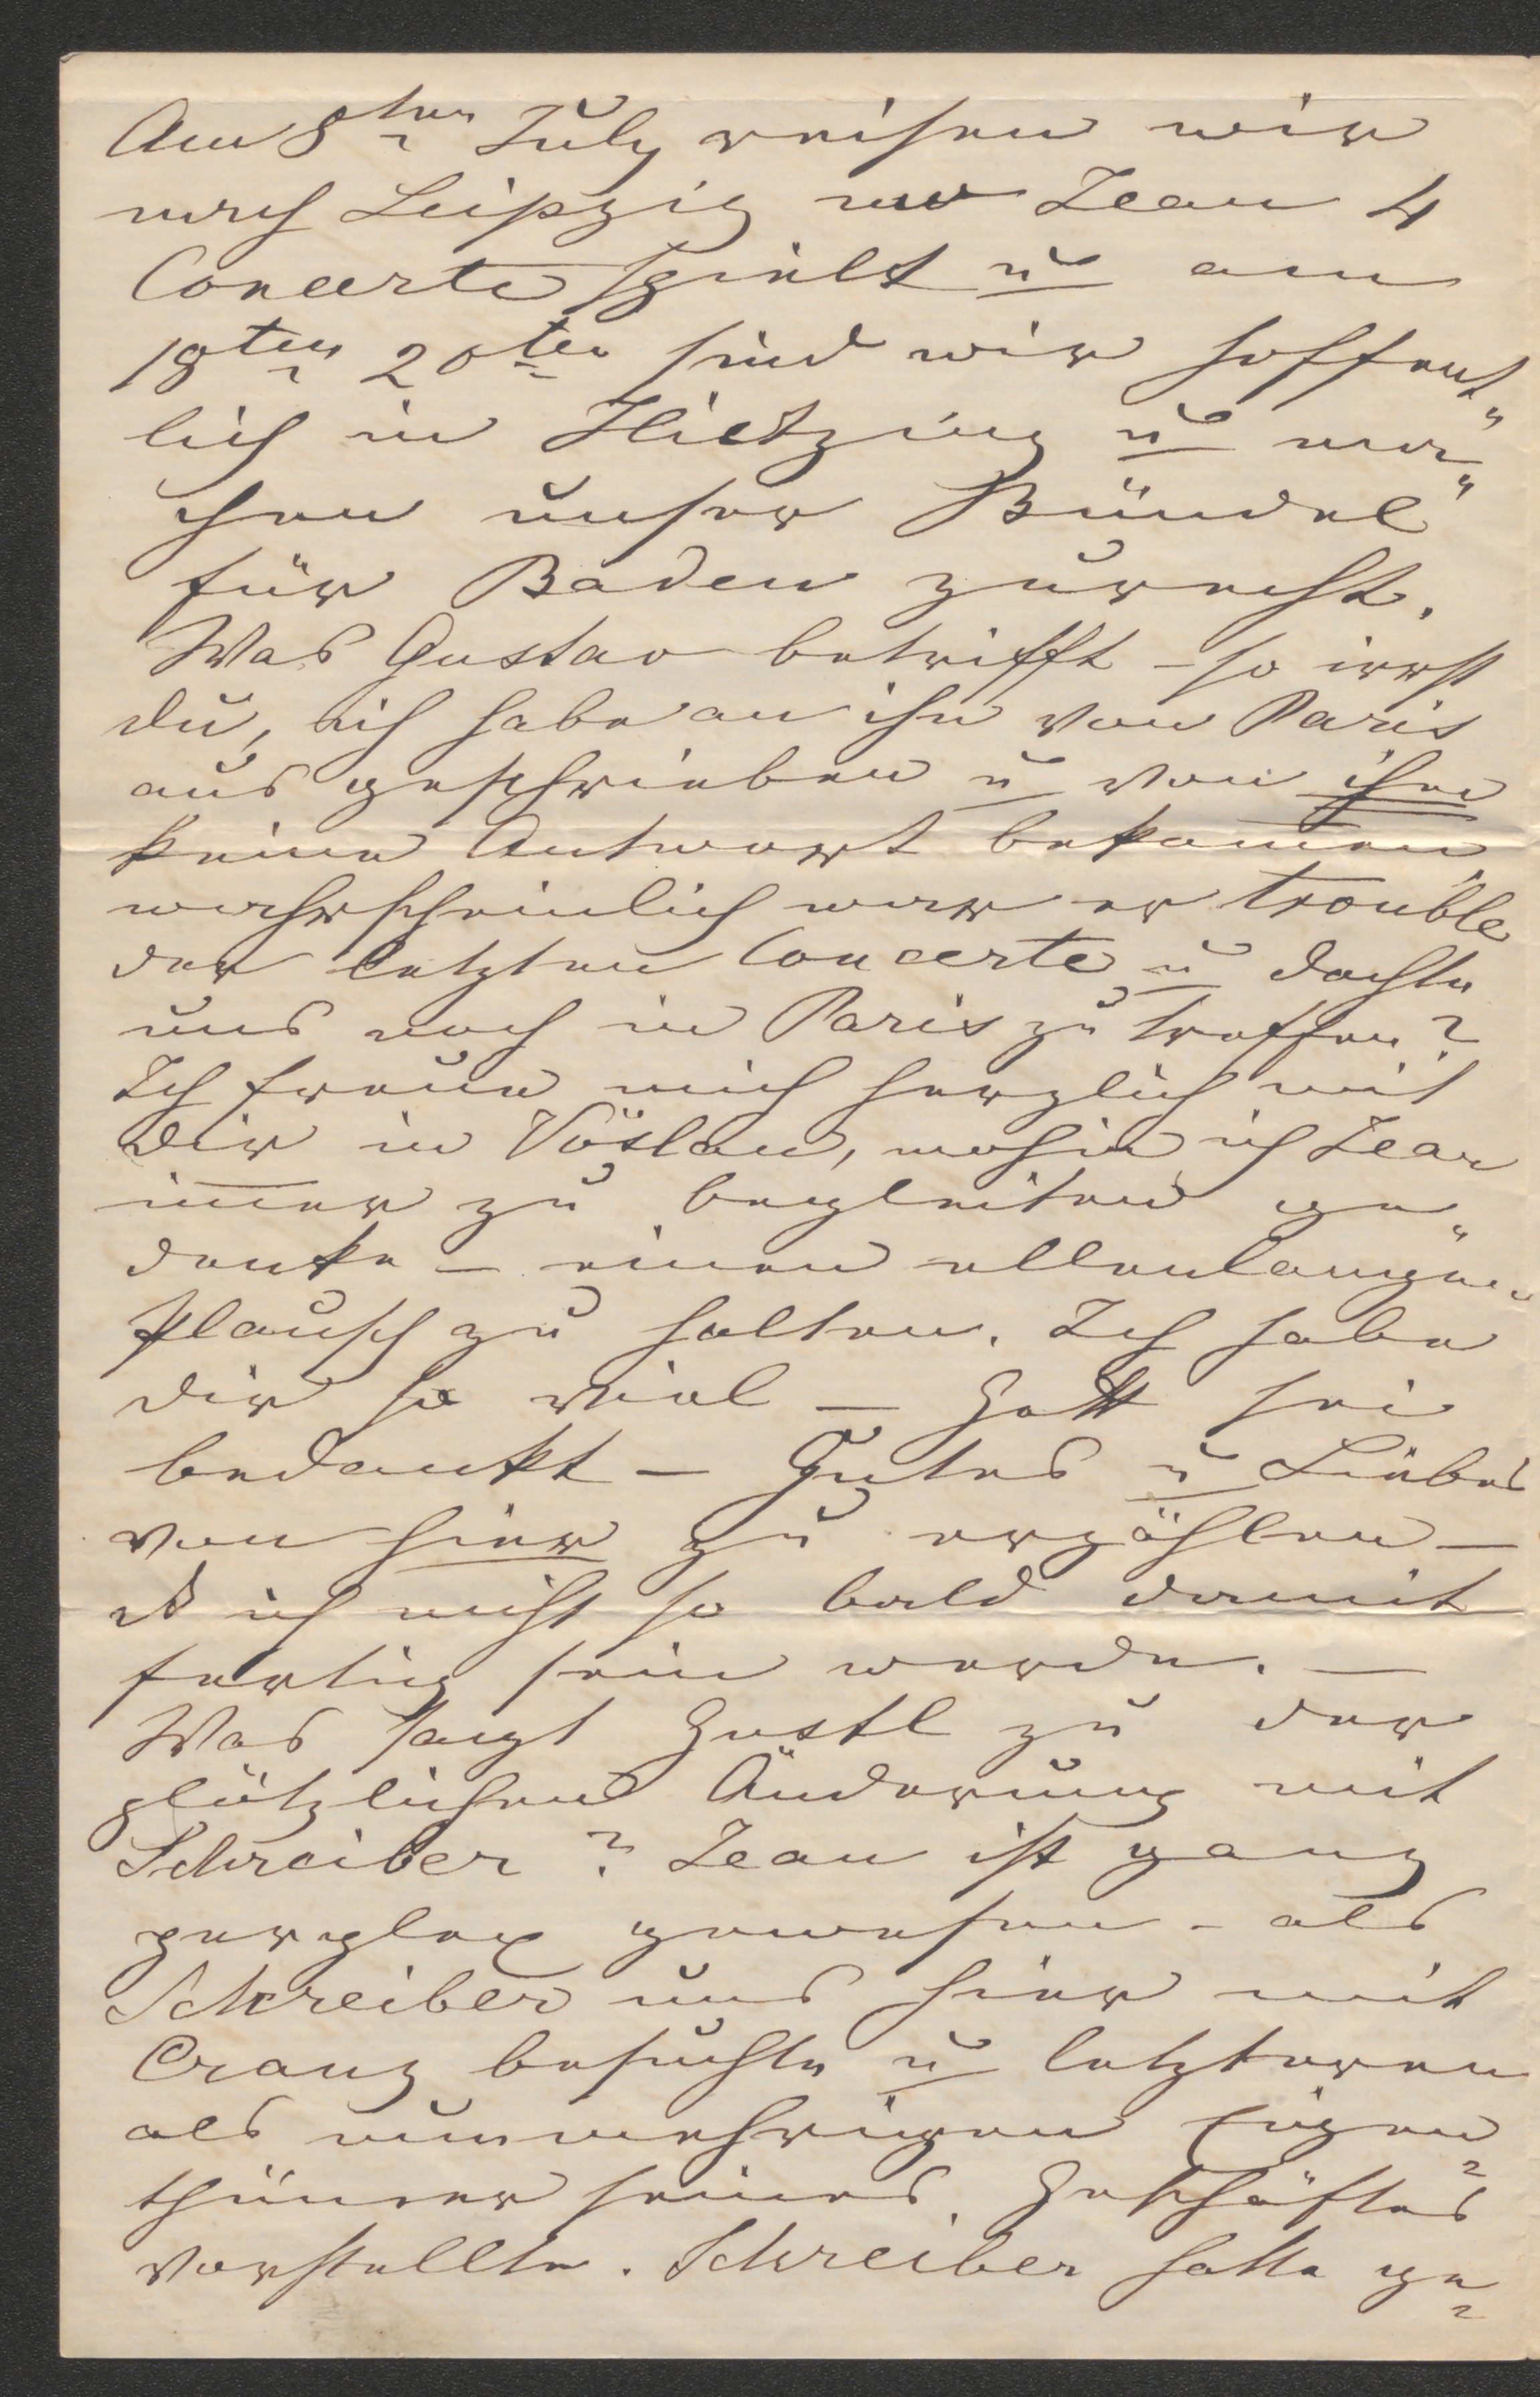 Am 8ten July reisen wir
nach Leipzig wo Jean 4
Concerte spielt u am
18ten 20ten sind wir hoffent„
lich in Hietzing u ma„
chen unser Bündel
für Baden zurecht.
Was Gustav betrifft – so irrst
du, ich habe an ihn von Paris
aus geschrieben u von ihm
keine Antwort bekom̅en
wahrscheinlich war er trouble
der letzten Concerte u dachte
uns noch in Paris zu treffen?
Ich freue mich herzlich mit
Dir in Vöslau, wohin ich Jean
im̅er zu begleiten ge„
denke – einen ellenlangen
Plausch zu halten. Ich habe
dir so viel – Gott sei
bedankt – Gutes u Liebes
von hier zu erzählen –
ich nicht so bald damit
fertig sein werde. –
Was sagt Gustl zu der
plötzlichen Änderung mit
Schreiber? Jean ist ganz
perplex gewesen – als
Schreiber uns hier mit
Cranz besuchte u letzteren
als nunmehrigen Eigen=
thümer seines Geschäftes
vorstellte. Schreiber hatte ge=